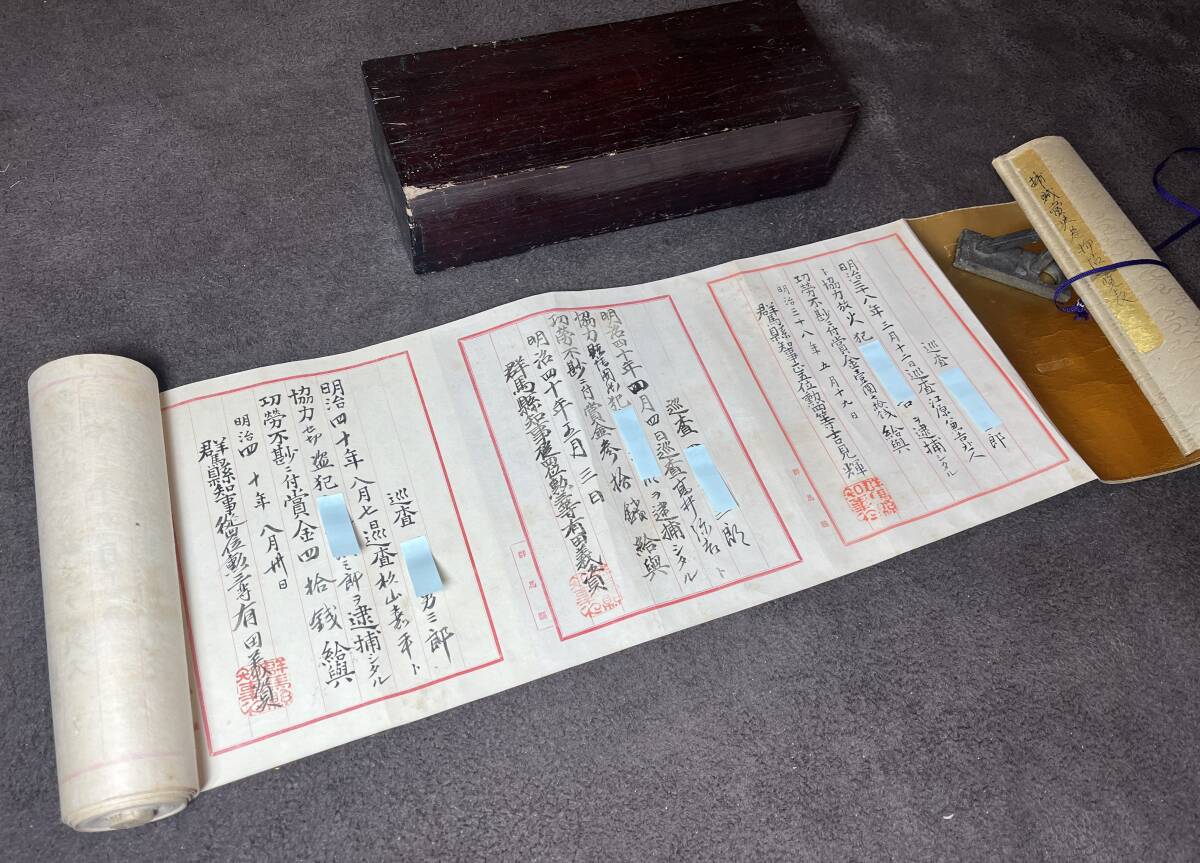 巡査 一郎
明治三十八年三月十二日巡査江原
ト協力放火犯 ヲ逮捕シタル
功労不尠ニ付賞金壹円 拾銭給與
明治三十八年五月十九日
群馬縣知事正五位勲四等吉見輝
群馬縣
巡査 二郎
明治四十年四月四日巡査高井 ト
協力 犯 ヲ逮捕シタル
功勞不尠ニ付賞金参拾銭給與
明治四十年五月三日
群馬縣知事従四位勲三等有田義資
群馬縣
巡査 男三郎
明治四十年八月七日巡査杉山嘉平ト
協力セ切盗犯 三郎ヲ逮捕シタル
功勞不尠ニ付賞金四拾銭給與
明治四十年八月卅日
群馬縣知事従四位勲三等有田義資